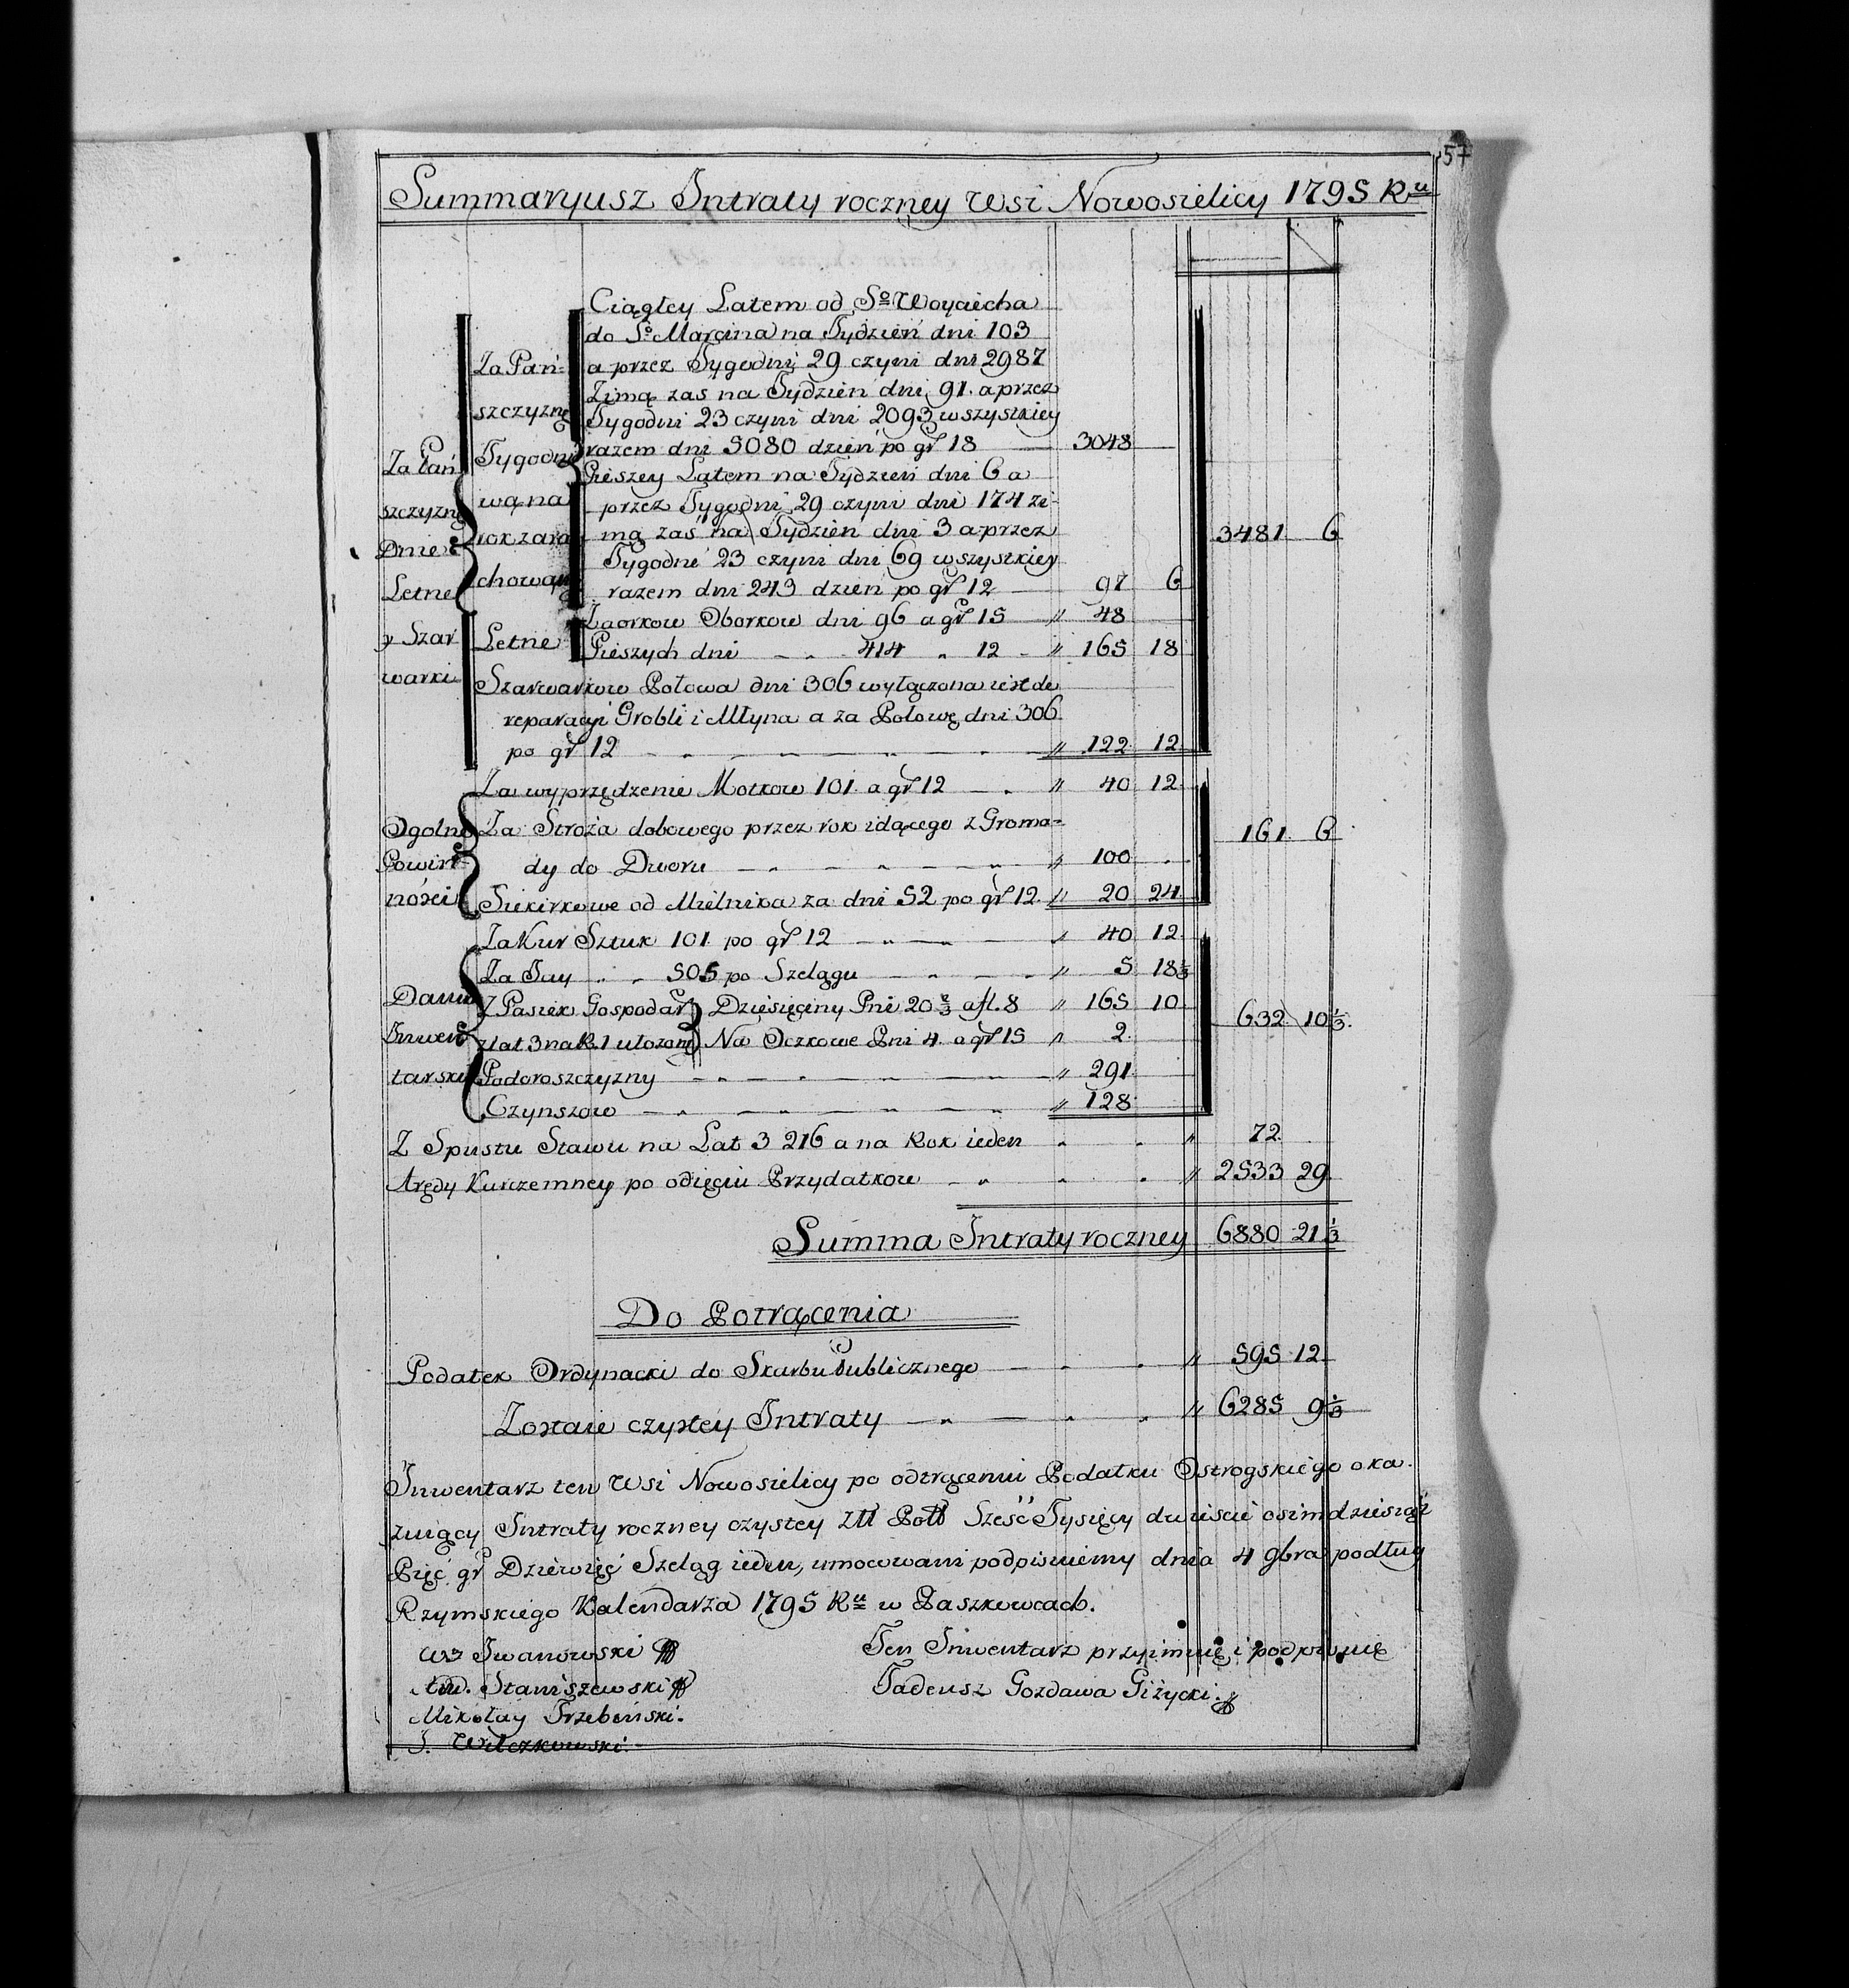 57
Summaryusz Intraty roczney Wsi Nowosielicy 1795 Ru
Za Pań
szczyznę
Dnie
Letne
y Szar
warki
Za Pań-
szczyznę
Tygodnio
wą na
rok zara
chowaną
Ciągłey Latem od So Woyciecha
do So Marcina na Tydzień dni 103
a przez Tygodni 29 czyni dni 2987
Zimą zas na Tydzien dni 91. a przez
Tygodni 23 czyni dni 2093 wszystkiey
razem dni 5080 dzień po gr 18 — 3048
Pieszey Latem na Tydzień dni 6 a
przez Tygodni 29 czyni dni 174 zi-
mą zaś na Tydzień dni 3 a przez
Tygodni 23 czyni dni 69 wszystkiey
razem dni 243 dzień po gr 12 — 97 6
3481 6
Letne
Zaorkow Oborkow dni 96 a gr 15 — " 48
Pieszych dni - " - 414 " 12 - " 165 18
Szarwarkow Połowa dni 306 wyłączona iest do
reparacyi Grobli i Młyna a za Połowę dni 306
po gr 12 — " 122 12
Ogolne
Powin-
ności
Za wyprzędzenie Motkow 101. a gr 12 — " 40 12
Za Stroża dobowego przez rok idącego z Groma-
dy do Dworu — " 100 .
Siekirkowe od Mielnika za dni 52 po gr 12. " 20 24
161 6
Danin
Inwen
tarskie
Za Kur Sztuk 101. po gr 12 — " 40 12
Za Jay . . 505 po Szelągu — " 5 18 1/3
Z Pasiek Gospodar Dziesięciny Pni 20 2/3 a fl. 8 " 165 10
z lat 3 na R. 1 ułożoney Na Oczkowe Pni 4. a gr 15 " 2.
Podoroszczyzny — " 291
Czynszow — " 128
632 10 1/3.
Z Spustu Stawu na Lat 3 216 a na Rok ieden " 72.
Arędy Karczemney po odięciu Przydatkow — " 2533 29.
Summa Intraty roczney 6880 21 1/3
Do Potrącenia
Podatek Ordynacki do Skarbu Publicznego — " 595 12
Zostaie czystey Intraty — " 6285 9 1/3
Inwentarz ten Wsi Nowosielicy po odtrąceniu Podatku Ostrogskiego oka-
zuiący Intraty roczney czystey złł Poll Sześć Tysięcy dwieście osimdziesiąt
Pięć gr Dziewięć Szeląg ieden, umocowani podpisuiemy dnia 4 9bra podług
Rzymskiego Kalendarza 1795 Ru w Paszkowcach.
Iwanowski
Ten Inwentarz przyimuię i podpisuię
Staniszewski
Tadeusz Gozdawa Giżycki.
Mikołay Trzebiński.
J. Wilczkowski.